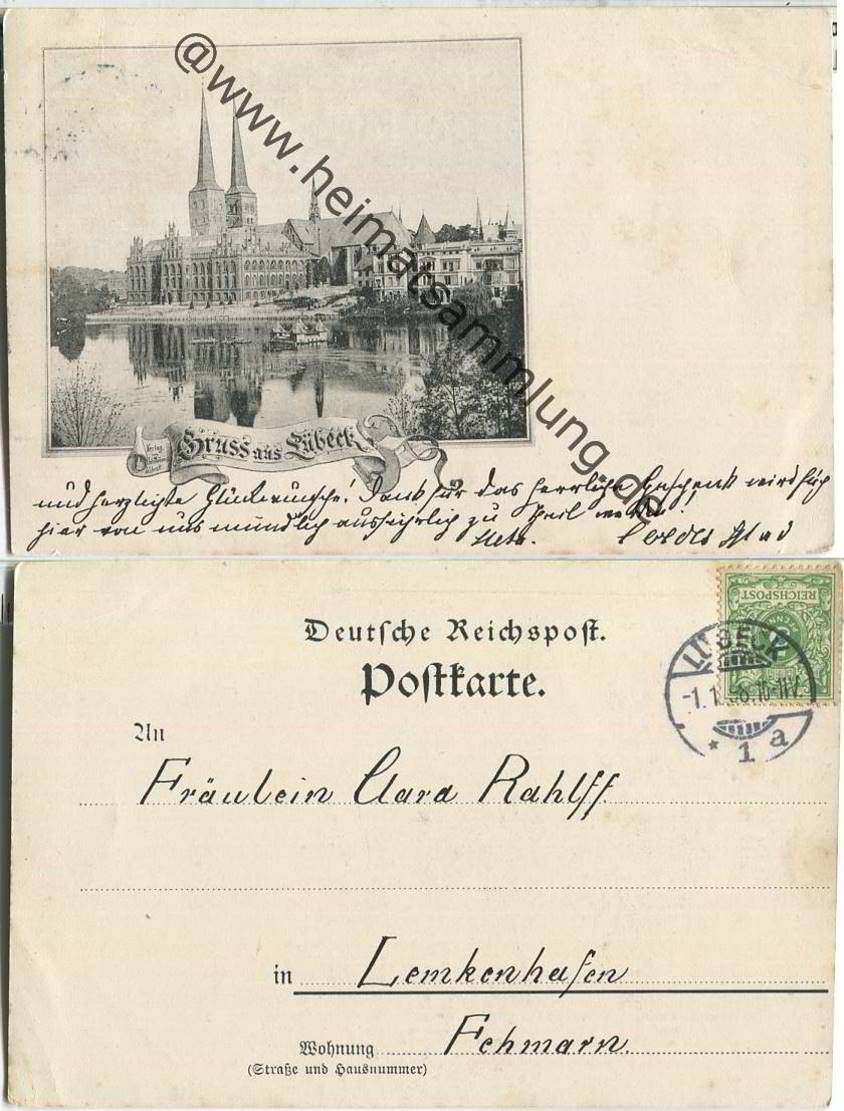 @www.heimatsammlung.de
Gruss aus Lübeck
Verlag
und herzlichste Glückwünsche! Dank für das herrliche Geschenk wird sich
hier von uns mündlich ausführlich zu Theil
Deutsche Reichspost.
Postkarte.
REICHSPOST
LÜBECK
1 a
An
Fräulein Clara Rahlff
in Lemkenhafen
Wohnung Fehmarn.
(Straße und Hausnummer)